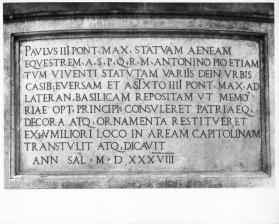 PAVLVS III PONT. MAX. STATVAM AENEAM
EQVESTREM. A. S. P. Q. R. M. ANTONINO PIO ETIAM
TVM VIVENTI STATVTAM VARIIS DEIN VRBIS
CASIB. EVERSAM ET A SIXTO IIII PONT. MAX. AD
LATERAN. BASILICAM REPOSITAM VT MEMO
RIAE OPT. PRINCIPIS CONSVLERET PATRIAEQ.
DECORA ATQ. ORNAMENTA RESTITVERET
EX HVMILIORI LOCO IN AREAM CAPITOLINAM
TRANSTVLIT ATQ. DICAVIT
ANN SAL. M. D XXXVIII